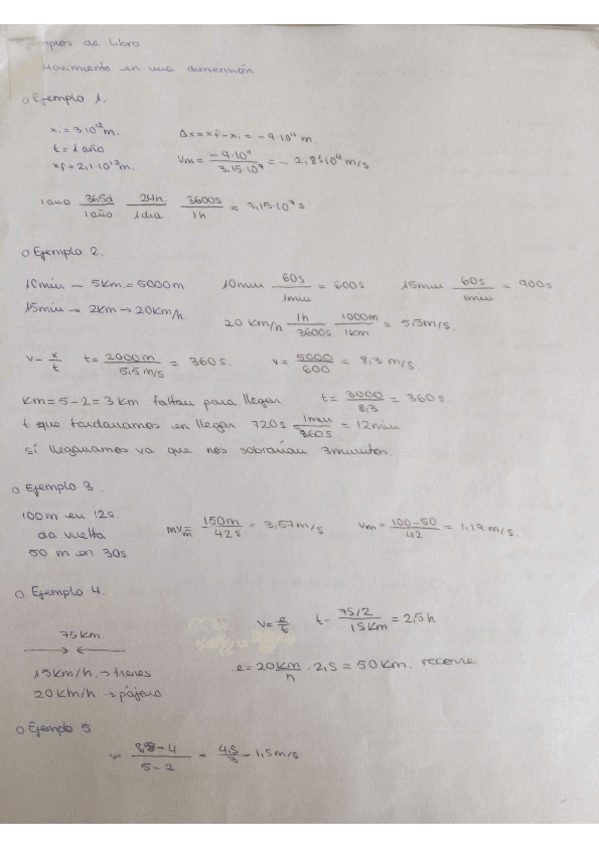 de Libro
Movimiento en una dimensión
o Ejemplo 1.
xi = 3·10¹²m.
Δx = xf - xi = - 9·10¹¹ m.
t = 1 año
xf = 2,1·10¹²m.
Vm = -9·10¹¹ / 3,15·10⁷ = - 2,8·10⁴ m/s
1 año 365d / 1 año 24h. / 1 dia 3600s / 1h = 3,15·10⁷ s
o Ejemplo 2.
10min - 5km. = 5000m
10min 60s / 1min = 600s
15min 60s / 1min = 900s
15min → 2km → 20km/h.
20 km/h 1h / 3600s 1000m / 1km = 5,5m/s.
v = x / t
t = 2000m / 5,5 m/s = 360s.
v = 5000 / 600 = 8,3 m/s
km = 5 - 2 = 3 km faltan para llegar
t = 3000 / 8,3 = 360s
t que tardaríamos en llegar 720s 1min / 360s = 12min
sí llegaríamos ya que nos sobrarían 3minutos.
o Ejemplo 3.
100m en 12s.
da vuelta
50 m en 30s
150m / 42s = 3,57m/s
Vm = 100-50 / 42 = 1,19m/s.
o Ejemplo 4.
75km.
v = e / t
t - 75/2 / 15km = 2,5h
15km/h. → trenes
20km/h → pájaro
e = 20 km / h · 2,5 = 50km. recorre
o Ejemplo 5
v = - 4 / 5 - 2 = 4,5 / 3 - 1,5m/s